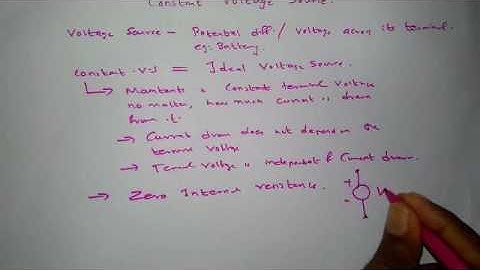 Constant Voltage Source.
Voltage Source - Potential diff. / Voltage across its terminal.
eg: Battery.
Constant V.S = Ideal Voltage Source.
↳ Maintants a Constant terminal Voltage
no matter, how much current is drawn
from it.
→ Current drawn does not depend on the
terminal voltage
→ Terminal voltage is independent of Current drawn.
→ Zero Internal resistance.
+
-
V